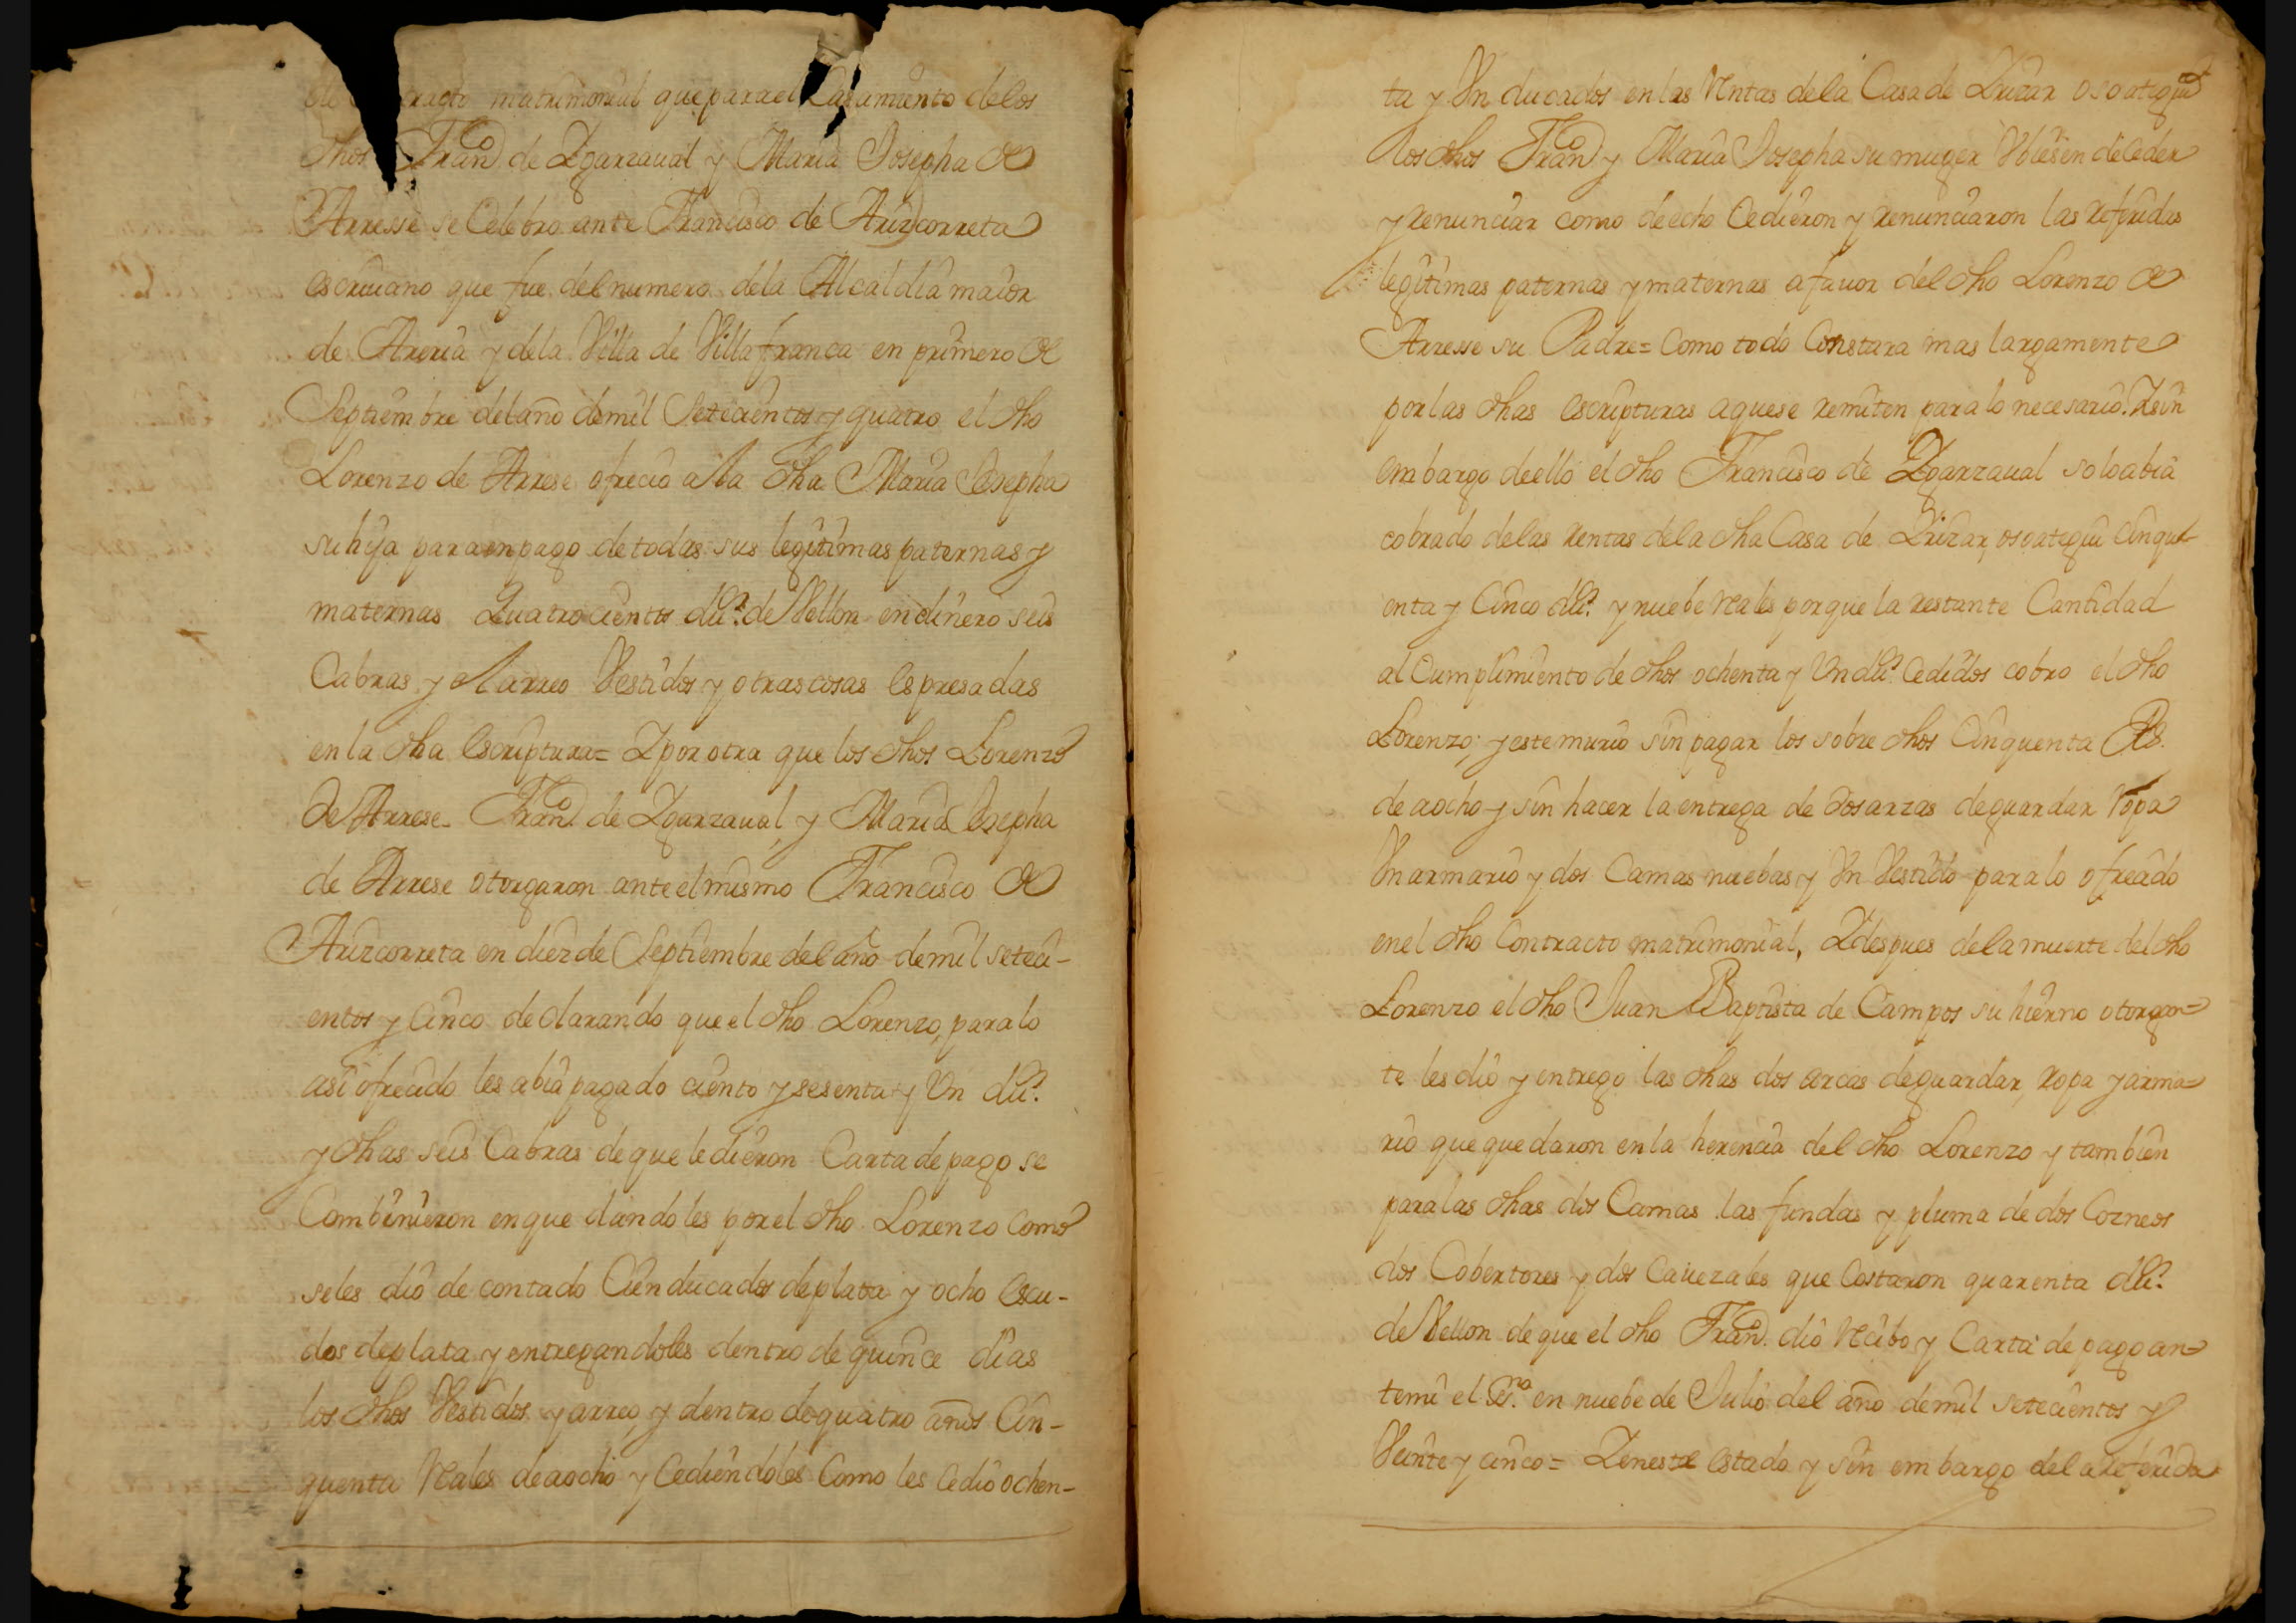 matrimonial que para el Casamiento delos
dhos Fran.co de Ygarzaual y Maria Josepha de
Arresse se Celebro ante Francisco de Arizcorreta
escriuano que fue del numero dela Alcaldia maior
de Areria y dela Villa de Villafranca en primero de
Septiembre del año demil Setecientos y quatro el dho
Lorenzo de Arrese ofrecio a la dha Maria Josepha
su hija para en pago de todas sus legitimas paternas y
maternas Quatrocientos du.s de Vellon en dinero seis
Cabras y Arreo Vestidos y otras cosas espresadas
en la dha Escriptura = Y por otra que los dhos Lorenzo
de Arrese Fran.co de Ygarzaual y Maria Josepha
de Arrese otorgaron ante el mismo Francisco de
Arizcorreta en diez de Septiembre del año demil seteci-
entos y Cinco declarando que el dho Lorenzo, para lo
asi ofrecido les abia pagado ciento y sesenta y Un du.s
y dhas seis Cabras de que le dieron Carta de pago se
Combinieron en que dandoles por el dho Lorenzo como
se les dio de contado Cien ducados de plata y ocho escu-
dos de plata y entregandoles dentro de quince dias
los dhos Vestidos y arreo, y dentro de quatro años Cin-
quenta Reales de a ocho y Cediendoles Como les Cedio ochen-
ta y Un ducados en las Rentas dela Casa de Yrizar osoategui
los dhos Fran.co y Maria Josepha su muger Vbiesen de Ceder
y renunciar como de echo Cedieron y renunciaron las referidas
legitimas paternas y maternas a fauor del dho Lorenzo de
Arresse su Padre = Como todo Constara mas largamente
por las dhas escripturas a que se remiten para lo necesario. Y sin
embargo de ello el dho Francisco de Ygarzaual solo abia
cobrado de las rentas de la dha Casa de Yrizar osoategui Cinqu-
enta y Cinco du.s y nuebe reales por que la restante Cantidad
al Cumplimiento de dhos ochenta y Un du.s Cedidos cobro el dho
Lorenzo; y este murio sin pagar los sobre dhos Cinquenta Rs.
de a ocho y sin hacer la entrega de dos arzas de guardar ropa
Un armario y dos Camas nuebas y Un Vestido para lo ofrecido
en el dho Contracto matrimonial, Y despues de la muerte del dho
Lorenzo el dho Juan Baptista de Campos su hierno otorgan=
te les dio y entrego las dhas dos arcas de guardar, ropa y arma=
rio que quedaron en la herencia del dho Lorenzo y tambien
para las dhas dos Camas las fundas y pluma de dos Cozneos
dos Cobertores y dos Cauezales que Costaron quarenta du.s
de Vellon de que el dho Fran.co dio recibo y Carta de pago an=
te mi el es.no en nuebe de Julio del año demil setecientos y
Veinte y cinco = Y en este estado y sin embargo de la referida